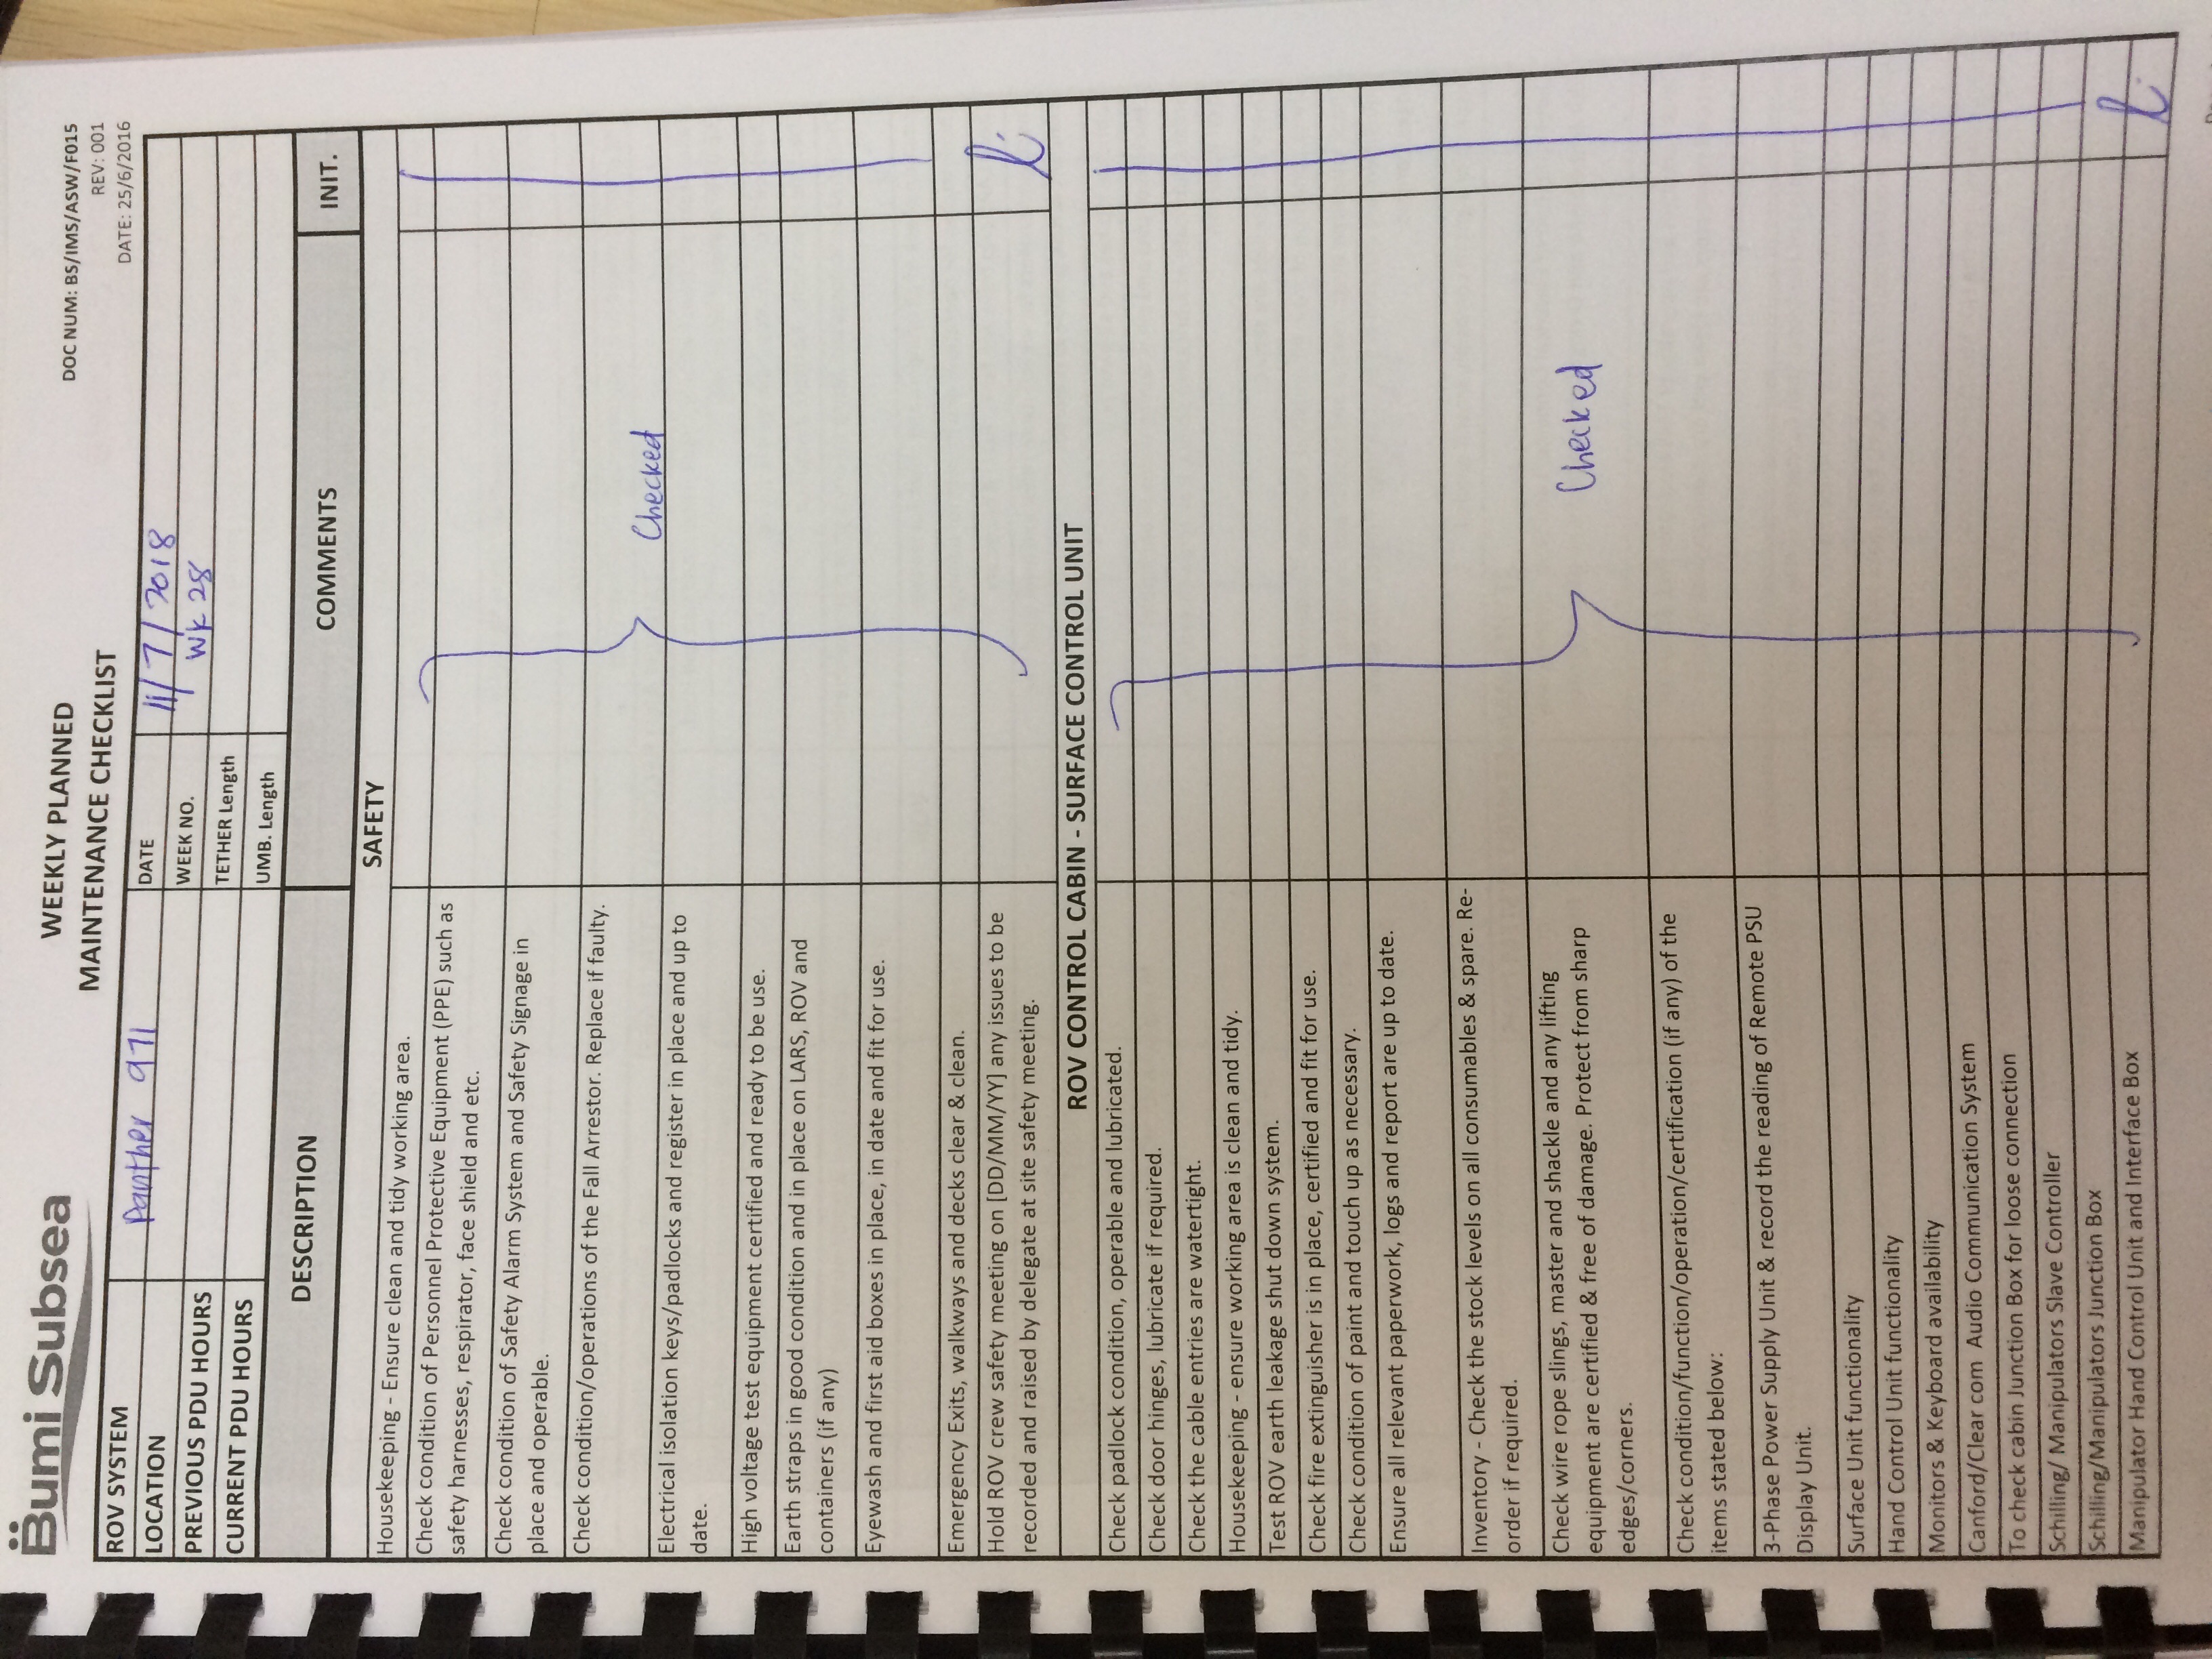 Bumi Subsea
WEEKLY PLANNED
MAINTENANCE CHECKLIST
DOC NUM: BS/IMS/ASW/F015
REV: 001
DATE: 25/6/2016
ROV SYSTEM
Panther 971
DATE
11/7/2018
LOCATION
WEEK NO.
Wk 28
PREVIOUS PDU HOURS
TETHER Length
CURRENT PDU HOURS
UMB. Length
DESCRIPTION
COMMENTS
INIT.
SAFETY
Housekeeping - Ensure clean and tidy working area.
Check condition of Personnel Protective Equipment (PPE) such as
safety harnesses, respirator, face shield and etc.
Check condition of Safety Alarm System and Safety Signage in
place and operable.
Check condition/operations of the Fall Arrestor. Replace if faulty.
Checked
Electrical isolation keys/padlocks and register in place and up to
date.
High voltage test equipment certified and ready to be use.
Earth straps in good condition and in place on LARS, ROV and
containers (if any)
Eyewash and first aid boxes in place, in date and fit for use.
Emergency Exits, walkways and decks clear & clean.
Hold ROV crew safety meeting on [DD/MM/YY] any issues to be
recorded and raised by delegate at site safety meeting.
ROV CONTROL CABIN - SURFACE CONTROL UNIT
Check padlock condition, operable and lubricated.
Check door hinges, lubricate if required.
Check the cable entries are watertight.
Housekeeping - ensure working area is clean and tidy.
Test ROV earth leakage shut down system.
Check fire extinguisher is in place, certified and fit for use.
Check condition of paint and touch up as necessary.
Ensure all relevant paperwork, logs and report are up to date.
Inventory - Check the stock levels on all consumables & spare. Re-
order if required.
Check wire rope slings, master and shackle and any lifting
equipment are certified & free of damage. Protect from sharp
edges/corners.
Checked
Check condition/function/operation/certification (if any) of the
items stated below:
3-Phase Power Supply Unit & record the reading of Remote PSU
Display Unit.
Surface Unit functionality
Hand Control Unit functionality
Monitors & Keyboard availability
Canford/Clear com Audio Communication System
To check cabin Junction Box for loose connection
Schilling/ Manipulators Slave Controller
Schilling/Manipulators Junction Box
Manipulator Hand Control Unit and Interface Box